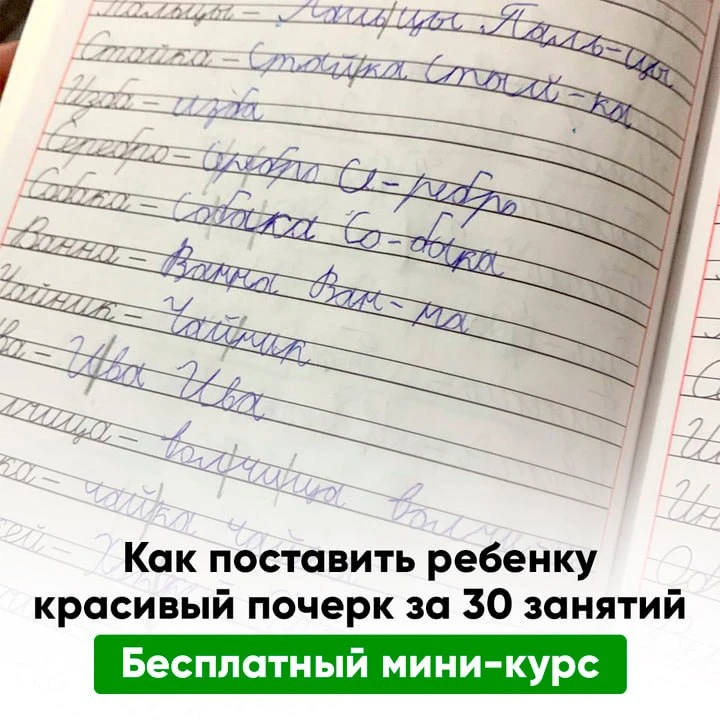 Пальцы – Пальцы Паль-цы
Стойка – Стойка Стый-ка
Изба – изба
Серебро – Серебро Се-ребро
Собака – Собака Со-бака
Ванна – Ванна Ван-на
Чайник – Чайник
– Ива Ива
– волчица
– чайка
Как поставить ребенку
красивый почерк за 30 занятий
Бесплатный мини-курс